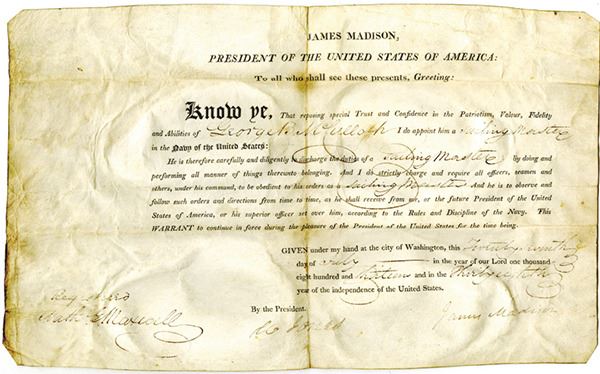 JAMES MADISON,
PRESIDENT OF THE UNITED STATES OF AMERICA:
To all who shall see these presents, Greeting:
Know ye, That reposing special Trust and Confidence in the Patriotism, Valour, Fidelity
and Abilities of George B McCulloch I do appoint him a Sailing Master
in the Navy of the United States:
He is therefore carefully and diligently to discharge the duties of a Sailing Master by doing and
performing all manner of things thereunto belonging. And I do strictly charge and require all officers, seamen and
others, under his command, to be obedient to his orders as a Sailing Master And he is to observe and
follow such orders and directions from time to time, as he shall receive from me, or the future President of the United
States of America, or his superior officer set over him, according to the Rules and Discipline of the Navy. This
WARRANT to continue in force during the pleasure of the President of the United States for the time being.
GIVEN under my hand at the city of Washington, this
day of in the year of our Lord one thousand
eight hundred and and in the
year of the independence of the United States.
By the President.
James Madison